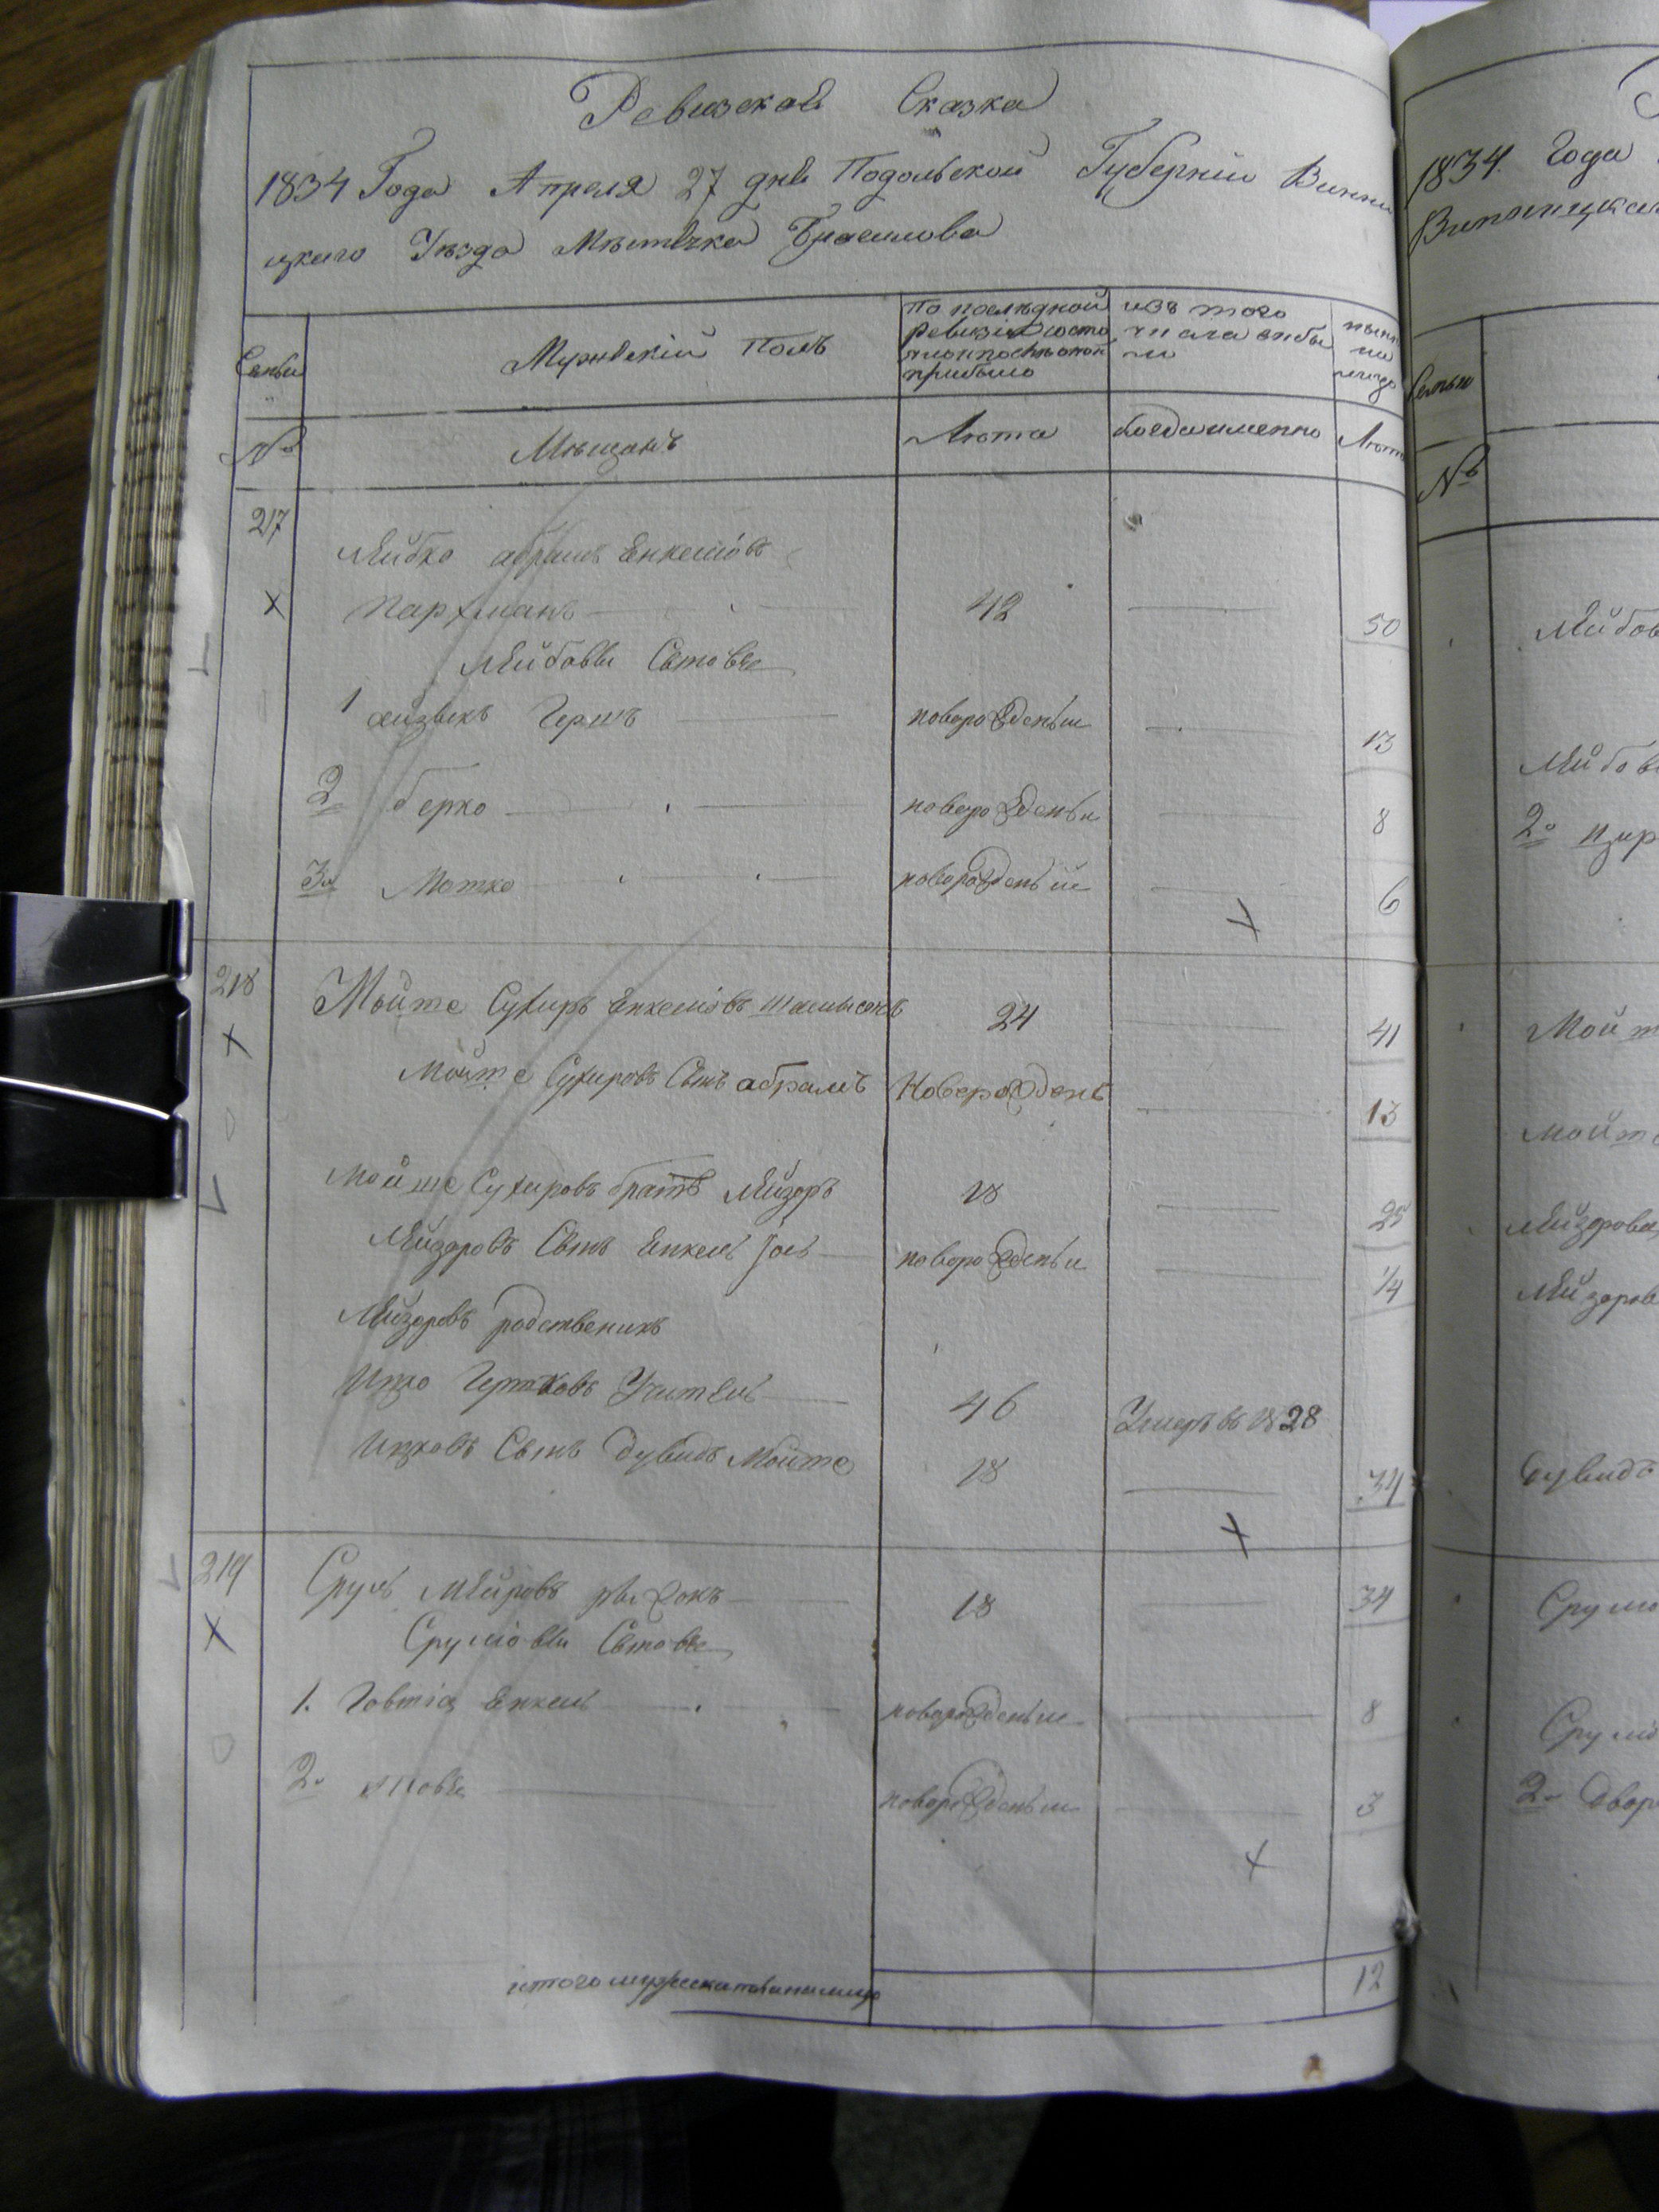 Ревизская Сказка
1834 Года Апреля 27 дня Подольской Губернии Винни
цкаго Уезда Мѣстечка Браилова
Семьи
Мужеский Полъ
По последной
ревизіи состо
прибыло
изъ того
числа выбы
ло
ныне
на
лицо
№
Мѣщанъ
Лѣта
когда именно
Лѣта
217
Лейбко абрамъ Енкелёвъ
Пархманъ 42 50
Лейбовы Сыновя
1 аизыкъ Гершъ новорожденый 13
2 берко новорожденый 8
3 Мотко новорожденый 6
218
Мойше Сухиръ Енкелёвъ 24 41
Мойше Сухировъ Сынъ абрамъ Новорожденъ 13
Мойше Сухировъ братъ Лейзоръ 18 25
Лейзоровъ Сынъ Енкель новорожденый 1/4
Лейзоровъ родственикъ
Ицко Гершковъ Учитель 46 Умеръ въ 1828
Ицковъ Сынъ дувидъ Мойше 18 34
219
Сруль Мейровъ 18 34
Срулёвы Сыновя
1. Енкель новорожденый 8
2. новорожденый 3
итого мужеска пола налицо 12
1834 Года
Винницкаго
Семьи
№
Лейбов
Лейбов
2.
Мойш
Мойше
Лейзорова
Лейзоров
дувидъ
Срулё
Срулё
2. двор